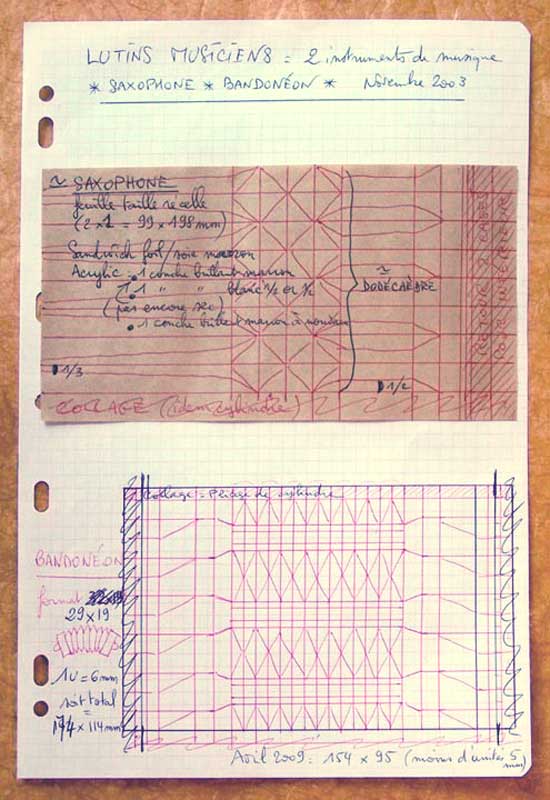 LUTINS MUSICIENS = 2 instruments de musique
* SAXOPHONE * BANDONÉON * Novembre 2003
~ SAXOPHONE
feuille taille réelle
(2 x 1 = 99 x 198 mm)
Sandwich foil/soie marron
Acrylic : 1 couche brillant marron
1 " " blanc 1/2 or 1/2
(pas encore sec)
• 1 couche brillant marron à nouveau
~ DODÉCAÈDRE
RETOUR 2 CASES
POUR
1/3
1/2
COLLAGE (idem cylindre)
Collage = Pliage de cylindre
BANDONÉON
format
29 x 19
1U = 6 mm
soit total
=
174 x 114 mm
Avril 2009 : 154 x 95 (moins d'unités 5 mm)